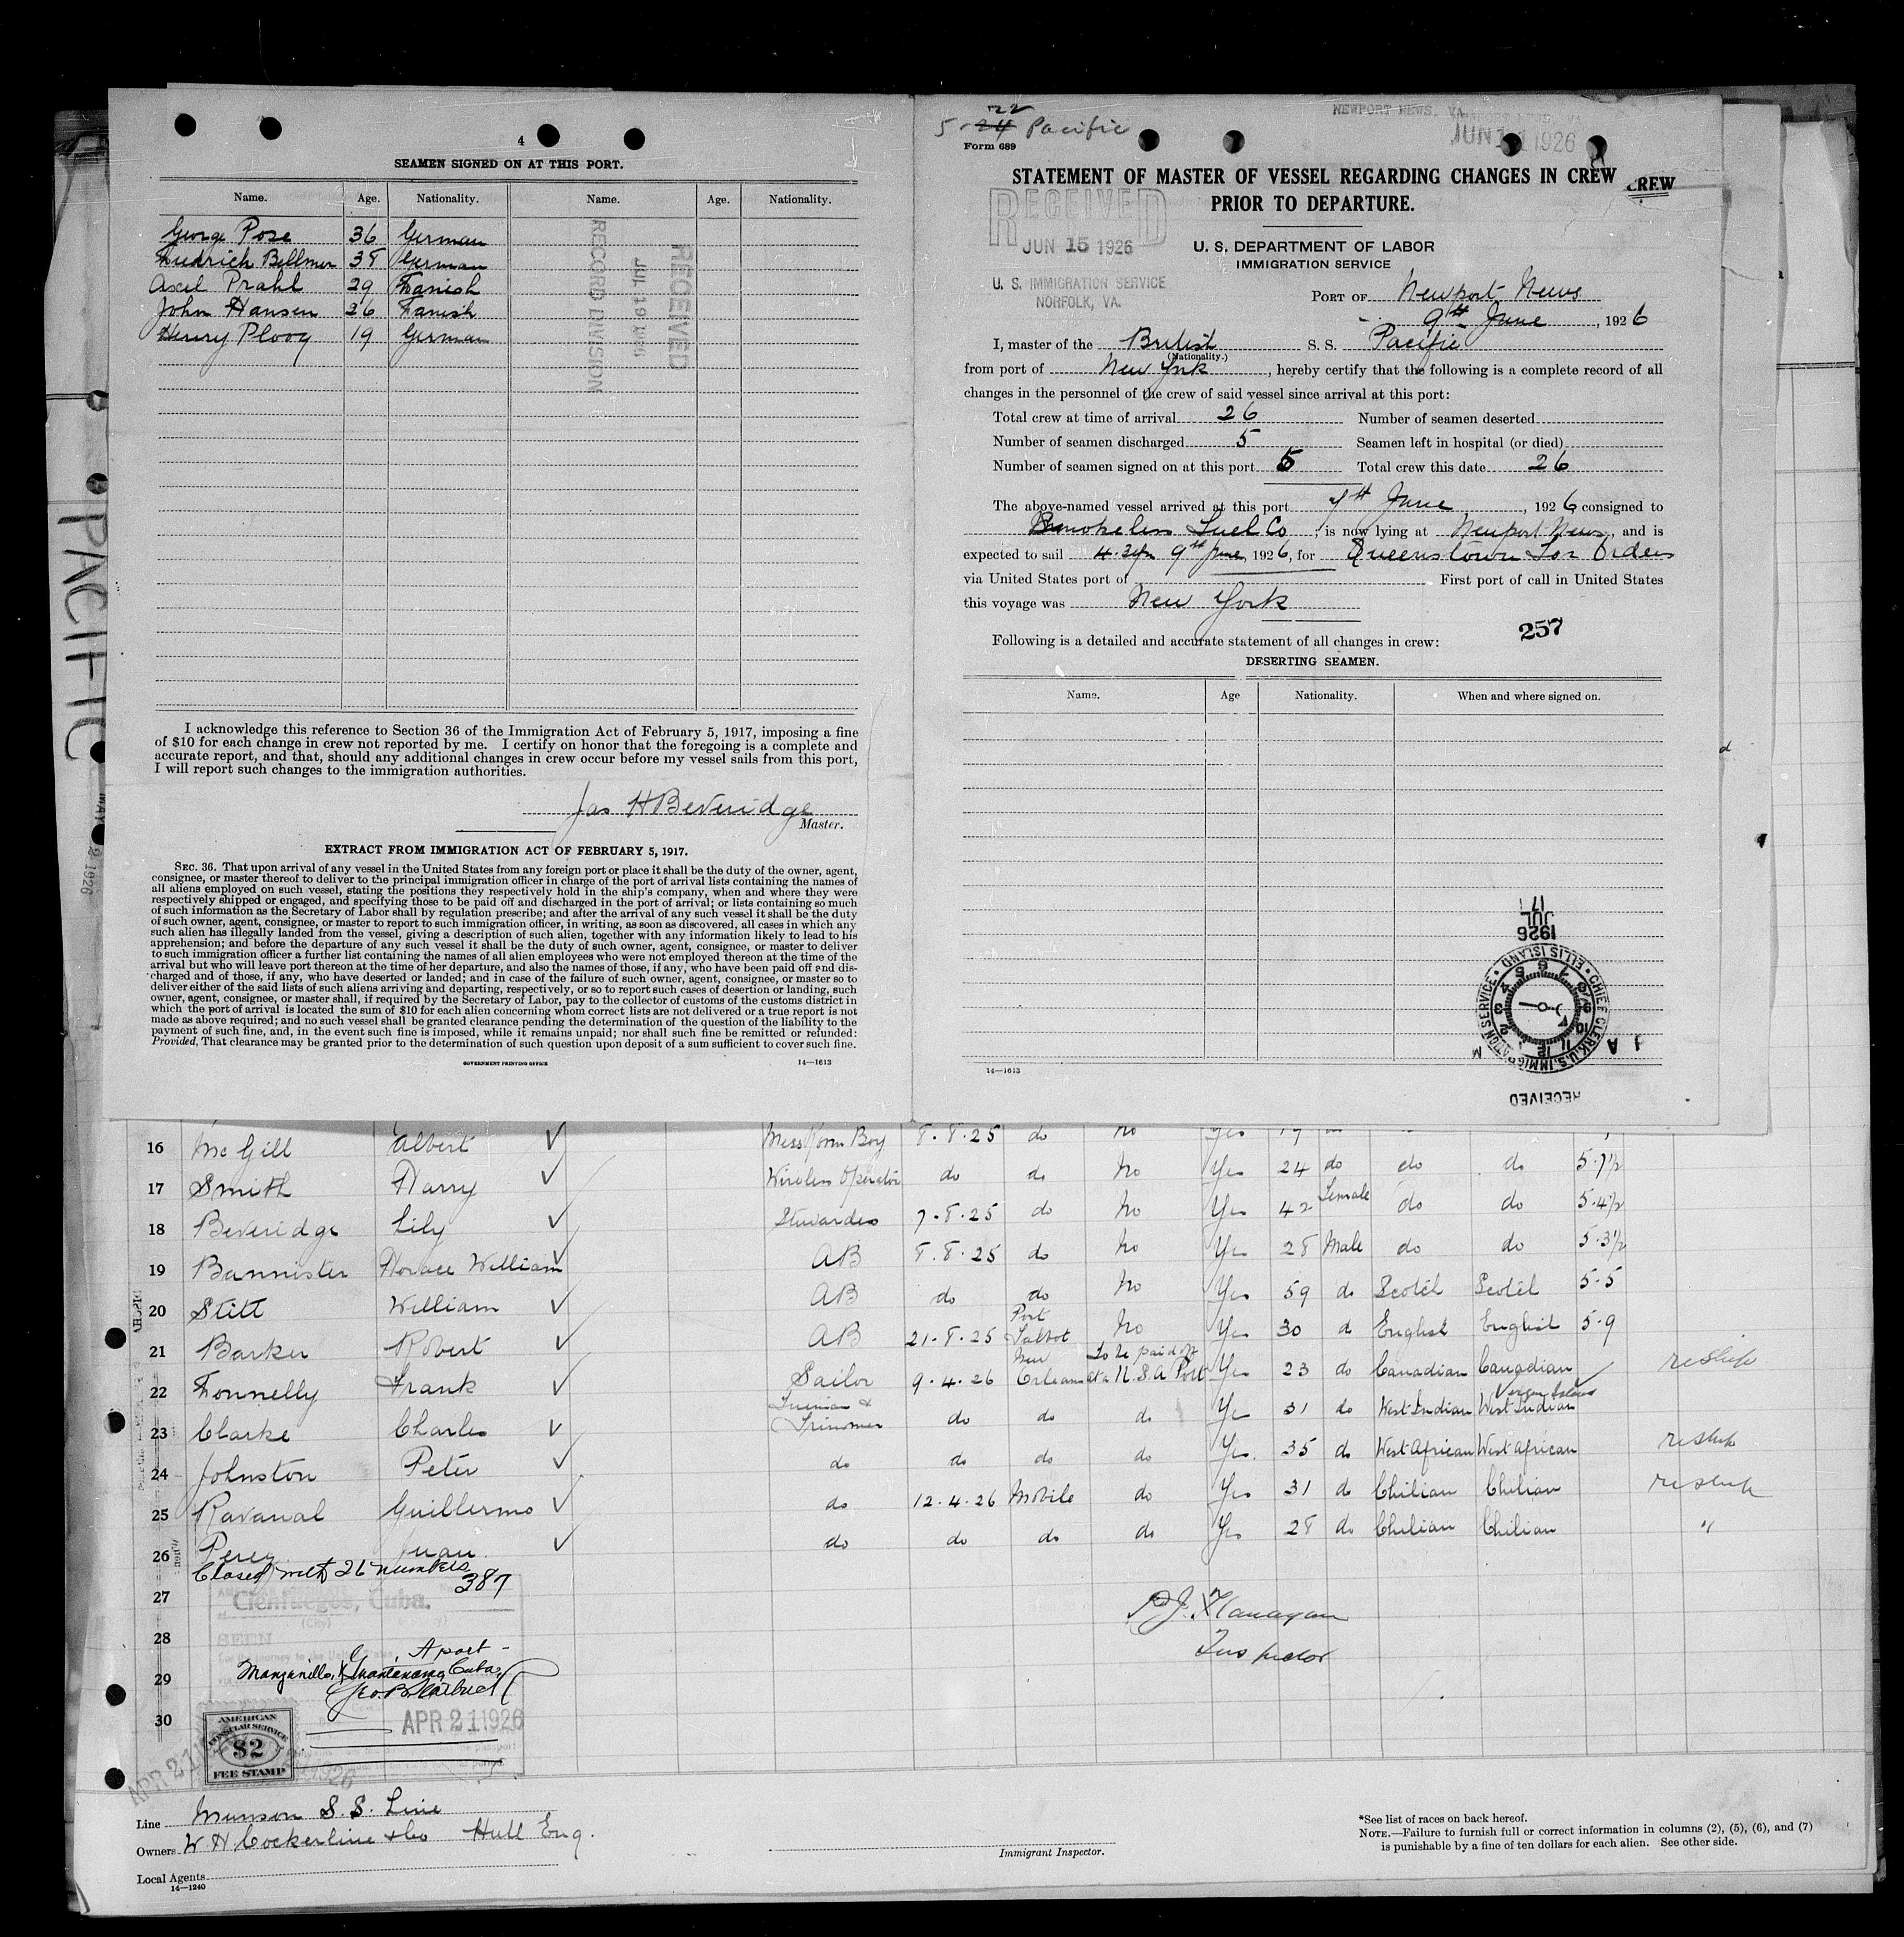 4
SEAMEN SIGNED ON AT THIS PORT.
Name. Age. Nationality. Name. Age. Nationality.
George Pose 36 German
Deidrich Bellmer 38 German
Axel Prahl 29 Danish
John Hansen 26 Danish
Henry Ploog 19 German
RECEIVED
JUL 19 1926
RECORD DIVISION
I acknowledge this reference to Section 36 of the Immigration Act of February 5, 1917, imposing a fine
of $10 for each change in crew not reported by me. I certify on honor that the foregoing is a complete and
accurate report, and that, should any additional changes in crew occur before my vessel sails from this port,
I will report such changes to the immigration authorities.
Jas H Beveridge
Master.
EXTRACT FROM IMMIGRATION ACT OF FEBRUARY 5, 1917.
SEC. 36. That upon arrival of any vessel in the United States from any foreign port or place it shall be the duty of the owner, agent,
consignee, or master thereof to deliver to the principal immigration officer in charge of the port of arrival lists containing the names of
all aliens employed on such vessel, stating the positions they respectively hold in the ship's company, when and where they were
respectively shipped or engaged, and specifying those to be paid off and discharged in the port of arrival; or lists containing so much
of such information as the Secretary of Labor shall by regulation prescribe; and after the arrival of any such vessel it shall be the duty
of such owner, agent, consignee, or master to report to such immigration officer, in writing, as soon as discovered, all cases in which any
such alien has illegally landed from the vessel, giving a description of such alien, together with any information likely to lead to his
apprehension; and before the departure of any such vessel it shall be the duty of such owner, agent, consignee, or master to deliver
to such immigration officer a further list containing the names of all alien employees who were not employed thereon at the time of the
arrival but who will leave port thereon at the time of her departure, and also the names of those, if any, who have been paid off and dis-
charged and of those, if any, who have deserted or landed; and in case of the failure of such owner, agent, consignee, or master so to
deliver either of the said lists of such aliens arriving and departing, respectively, or so to report such cases of desertion or landing, such
owner, agent, consignee, or master shall, if required by the Secretary of Labor, pay to the collector of customs of the customs district in
which the port of arrival is located the sum of $10 for each alien concerning whom correct lists are not delivered or a true report is not
made as above required; and no such vessel shall be granted clearance pending the determination of the question of the liability to the
payment of such fine, and, in the event such fine is imposed, while it remains unpaid; nor shall such fine be remitted or refunded:
Provided, That clearance may be granted prior to the determination of such question upon deposit of a sum sufficient to cover such fine.
GOVERNMENT PRINTING OFFICE 14—1613
22
5-24 Pacific
Form 689
NEWPORT NEWS, VA.
JUN 11 1926
STATEMENT OF MASTER OF VESSEL REGARDING CHANGES IN CREW
CREW
PRIOR TO DEPARTURE.
RECEIVED
JUN 15 1926
U. S. IMMIGRATION SERVICE
NORFOLK, VA.
U. S. DEPARTMENT OF LABOR
IMMIGRATION SERVICE
PORT OF Newport News
9th June, 1926
I, master of the British S. S. Pacific
(Nationality.)
from port of New York, hereby certify that the following is a complete record of all
changes in the personnel of the crew of said vessel since arrival at this port:
Total crew at time of arrival 26 Number of seamen deserted
Number of seamen discharged 5 Seamen left in hospital (or died)
Number of seamen signed on at this port 5 Total crew this date 26
The above-named vessel arrived at this port 7th June, 1926 consigned to
Smokeless Fuel Co, is now lying at Newport News, and is
expected to sail 4.30pm 9th June, 1926, for Queenstown For Orders
via United States port of First port of call in United States
this voyage was New York
257
Following is a detailed and accurate statement of all changes in crew:
DESERTING SEAMEN.
Name. Age Nationality. When and where signed on.
14—1613
RECEIVED
CHIEF CLERK, U.S. IMMIGRATION SERVICE • ELLIS ISLAND •
1926
JUL
17
PACIFIC
MAY 2 1926
16 McGill Albert Mess Room Boy 8.8.25 do No Yes 19 do
17 Smith Harry Wireless Operator do do No Yes 24 do do do 5.7½
18 Beveridge Lily Stewardess 7.8.25 do No Yes 42 Female do do 5.4½
19 Bannister Horace William AB 8.8.25 do No Yes 28 Male do do 5.3½
20 Stitt William AB do do No Yes 59 do Scotch Scotch 5.5
21 Barker Robert AB 21.8.25 Port Talbot No Yes 30 do English English 5.9
22 Donnelly Frank Sailor 9.4.26 New Orleans To be paid off at a U.S.A Port Yes 23 do Canadian Canadian reship
23 Clarke Charles Fireman & Trimmer do do do Yes 31 do West Indian West Indian Virgin Island
24 Johnston Peter do do do do Yes 35 do West African West African reship
25 Ravanal Guillermo do 12.4.26 Mobile do Yes 31 do Chilian Chilian reship
26 Perez Juan do do do do Yes 28 do Chilian Chilian "
Closed with 26 numbers
387
27
Cienfuegos, Cuba.
(City)
28
SEEN
29
Manzanillo, Guantanamo, Cuba,
30
APR 21 1926
AMERICAN
CONSULAR SERVICE
$2
FEE STAMP
APR 21 1926
P.J. Flanagan
Inspector
Line Munson S.S. Line
Owners W H Cockerline & Co Hull Eng.
Local Agents
14—1240
Immigrant Inspector.
*See list of races on back hereof.
NOTE.—Failure to furnish full or correct information in columns (2), (5), (6), and (7)
is punishable by a fine of ten dollars for each alien. See other side.